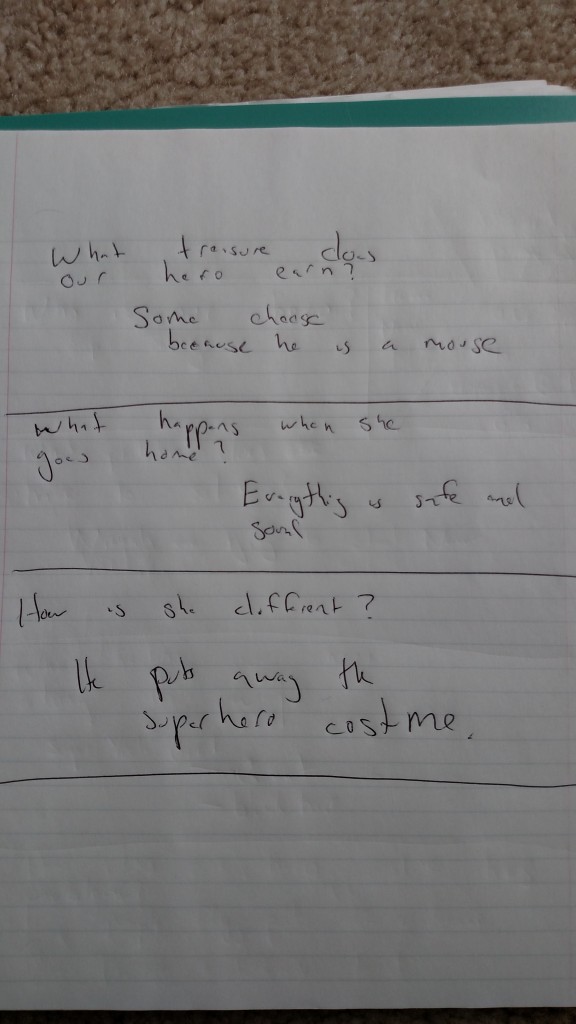 What treasure does
our hero earn?
Some cheese
because he is a mouse
What happens when she
goes home?
Everything is safe and
sound
How is she diffrent?
He puts away the
superhero costme.